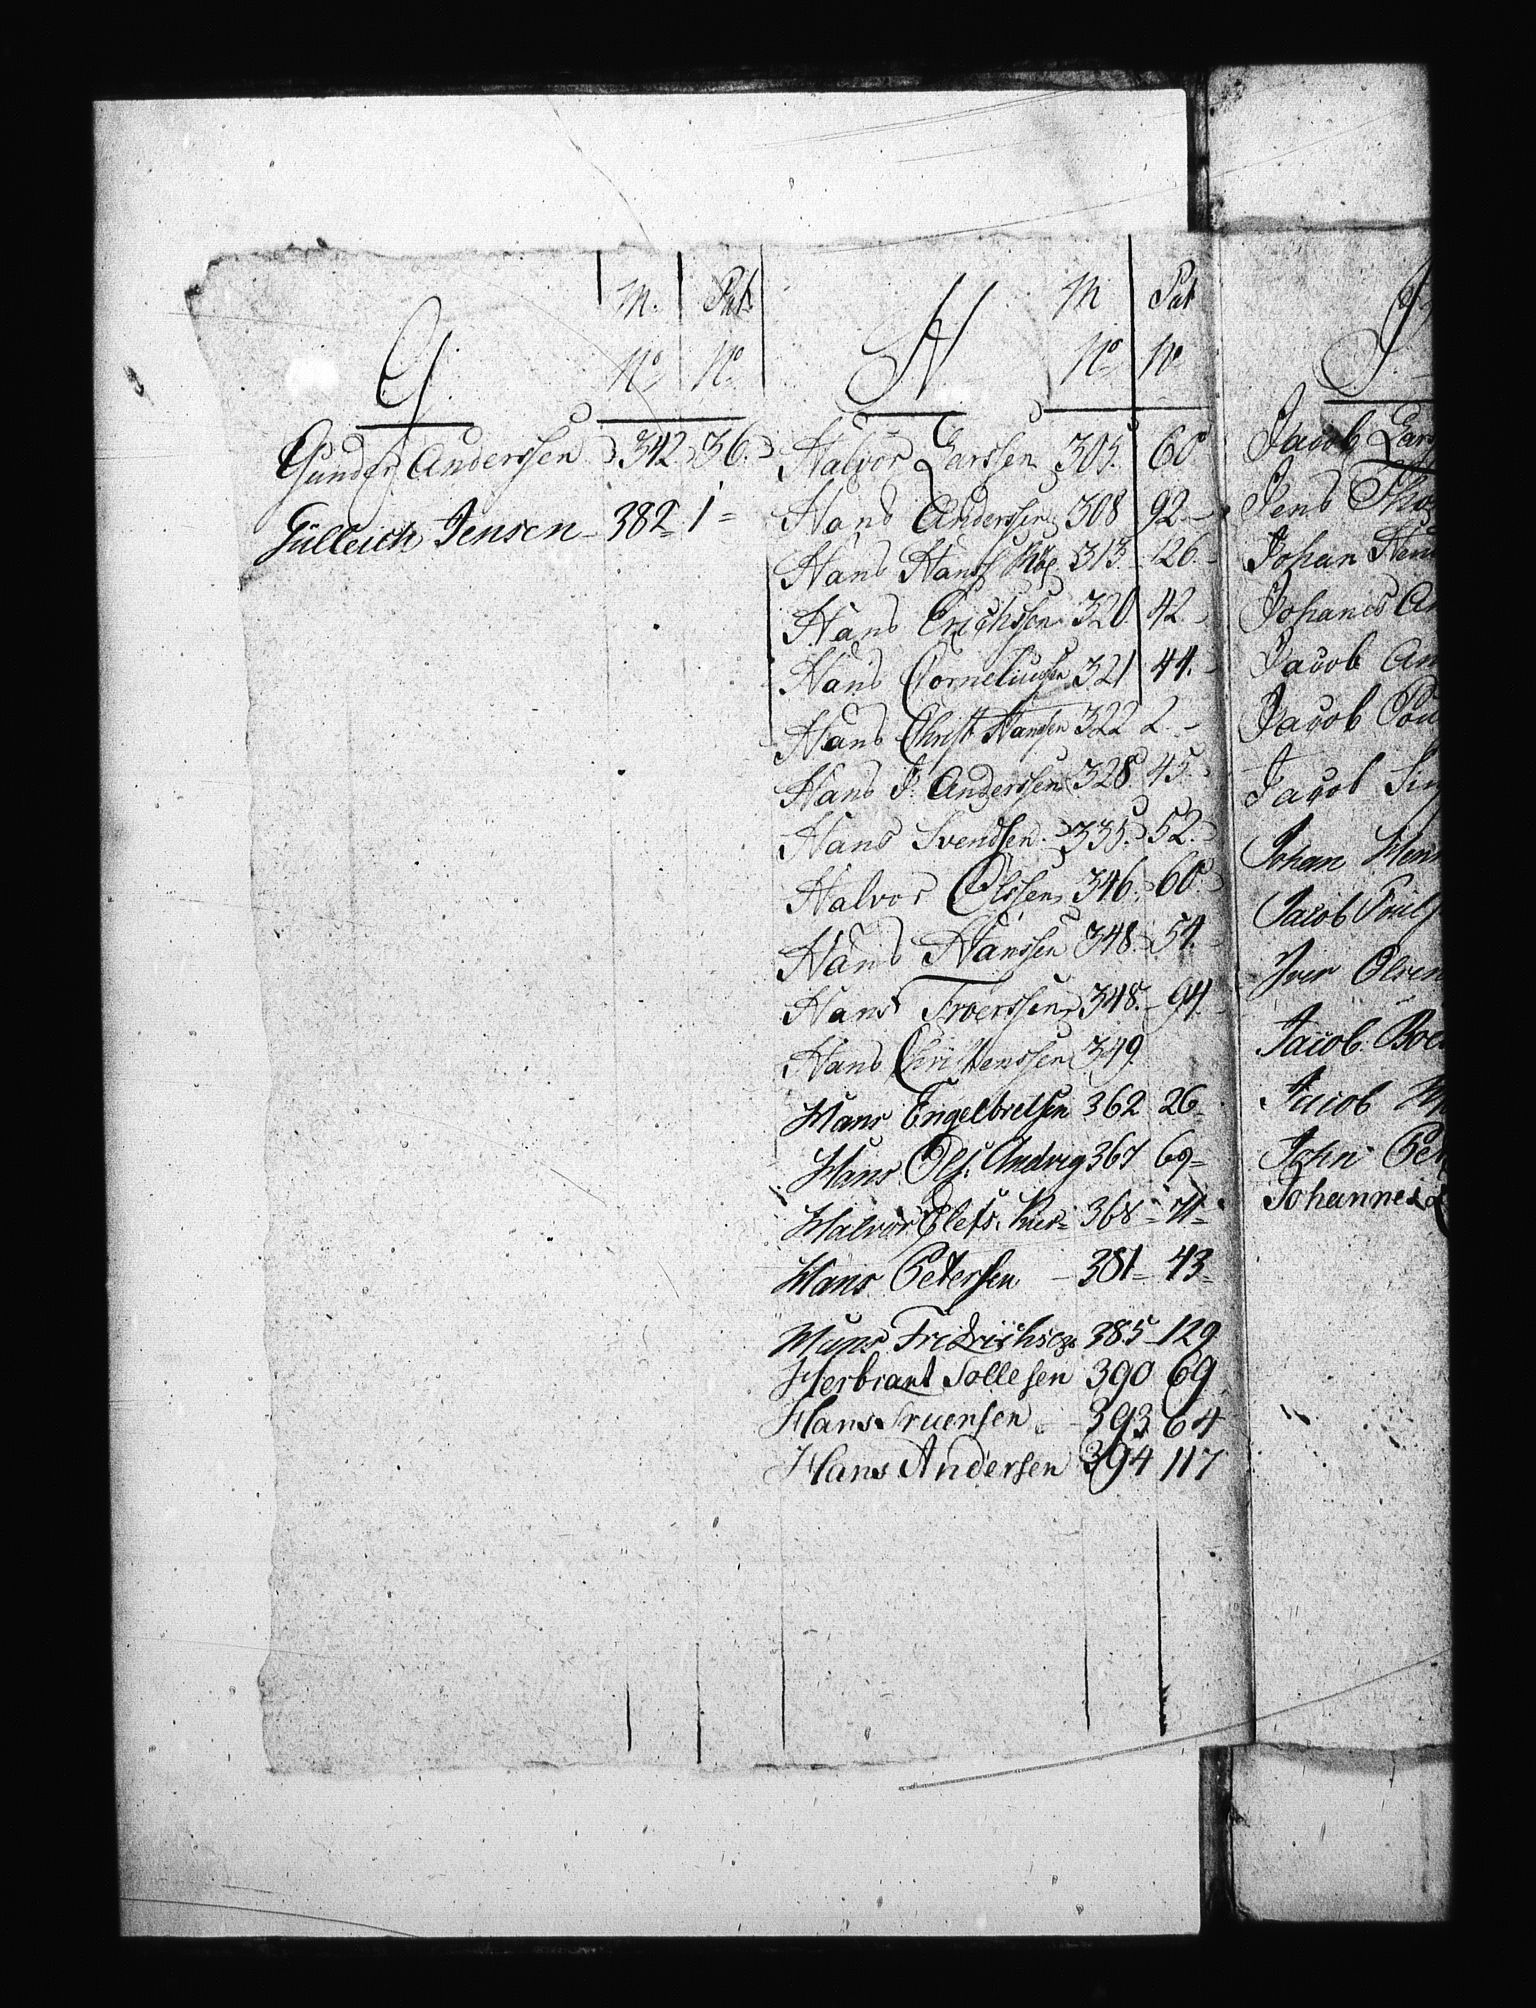 G
M. Pat.
No No
Gunder Anderssen 342. 36.
Gülleich Jensen 382 1
H
M Pat
No No
Halvor Larssen 305. 60
Hans Anderssen 308 92.
Hans Hanss 313. 126.
Hans Erichssen 320. 42.
Hans Corneliussen 321 44.
Hans Christ Hansen 322 2.
Hans J. Anderssen 328. 45.
Hans Svendsen. 335. 52.
Halvor Olssen 346. 60
Hans Hanssen 348. 54.
Hans Troerssen 348. 94.
Hans Christenssen 349.
Hans Engelbretsen 362 26
Hans Ols. Andvig 367 69
Halvor Elefs. 368 71
Hans Petersen 381 43
Hans Fridrichsen 385 129
Herbrant Tollesen 390 69
Hans Truensen 393 64
Hans Andersen 394 117
J.
Jacob Lars
Jens Tho
Johan Hen
Johanes An
Jacob An
Jacob Pou
Jacob Sin
Johan Hen
Jacob Poul
Iver Olsen
Jacob. Boe
Jacob
John Pet
Johannes